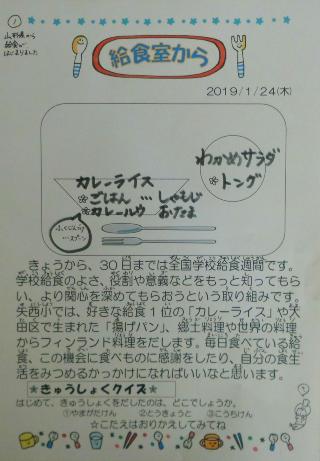 ①
山形県から
給食が
はじまりました
給食室から
2019/1/24(木)
カレーライス
わかめサラダ
※ごはん … しゃもじ
※トング
※カレールウ おたま
ふくじんづけ
…スプーン
きょうから、30日までは全国学校給食週間です。
学校給食のよさ、役割や意義などをもっと知ってもら
い、より関心を深めてもらおうという取り組みです。
矢西小では、好きな給食1位の「カレーライス」や大
田区で生まれた「揚げパン」、郷土料理や世界の料理
からフィンランド料理をだします。毎日食べている給
食、この機会に食べものに感謝をしたり、自分の食生
活をみつめるかっかけになればいいなと思います。
★きゅうしょくクイズ★
はじめて、きゅうしょくをだしたのは、どこでしょうか。
①やまがたけん ②とうきょうと ③こうちけん
☆こたえはおりかえしてみてね